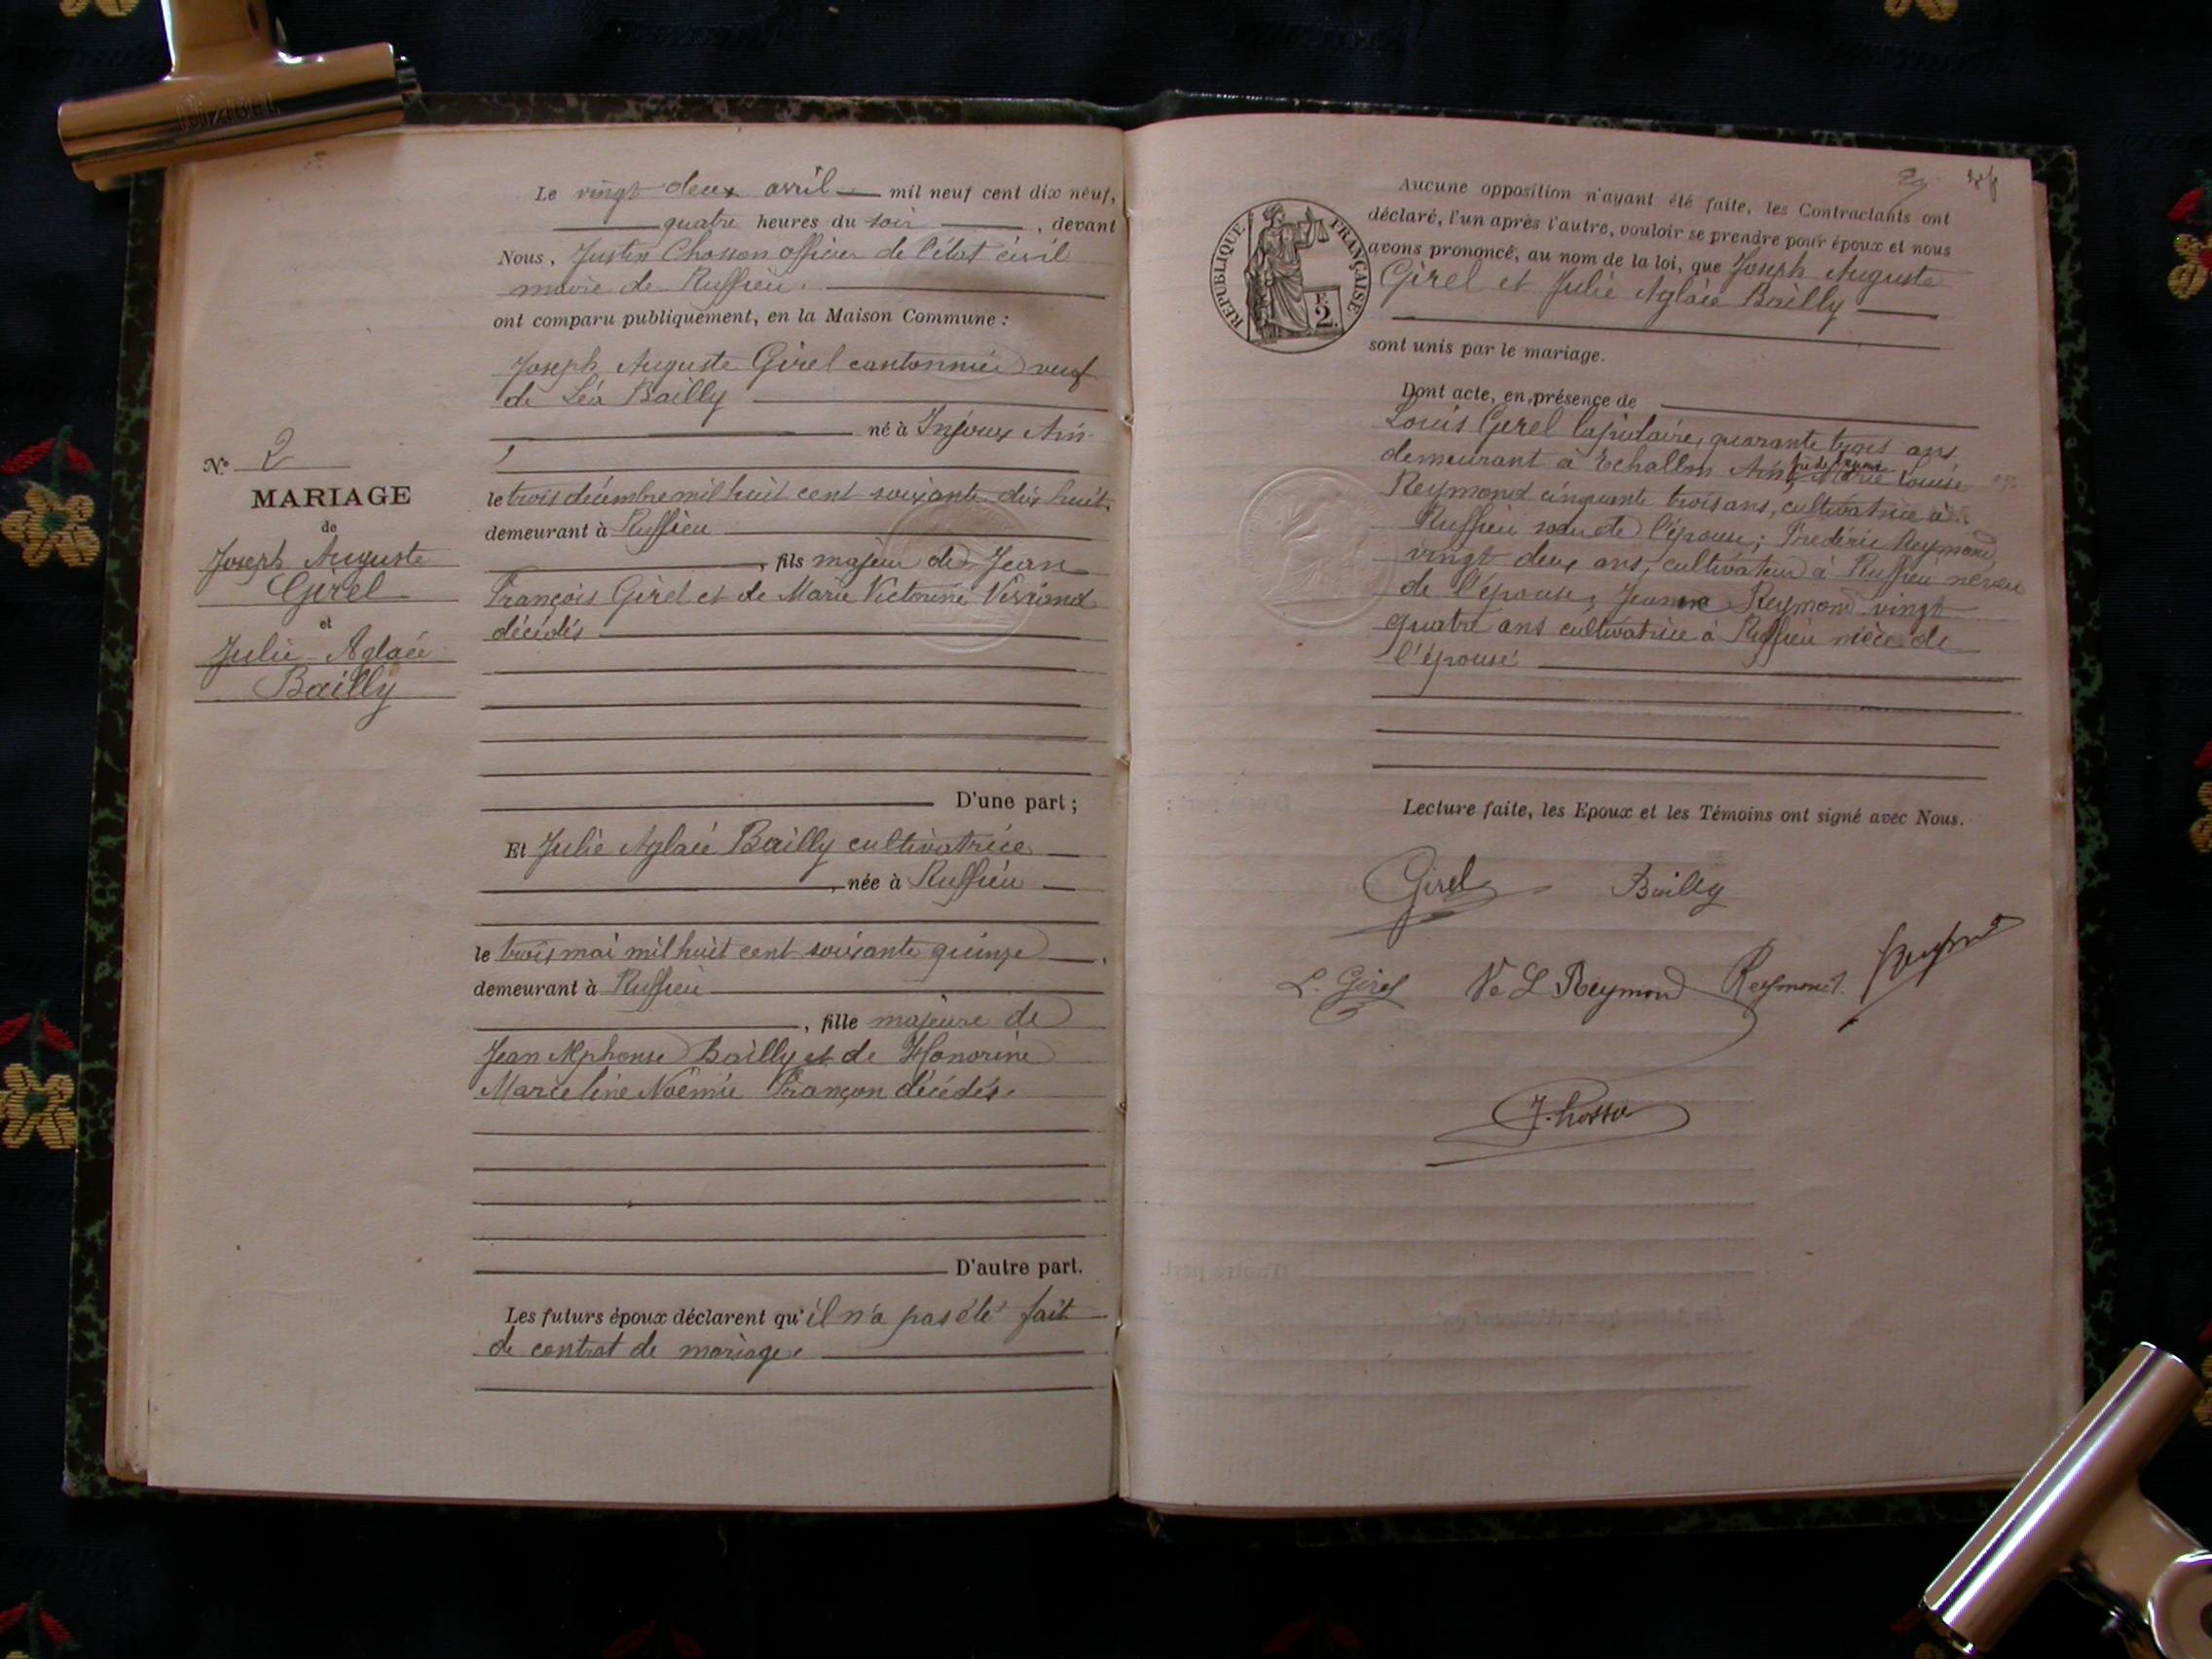 N° 2
MARIAGE
de
Joseph Auguste
Girel
et
Julie Aglaée
Bailly
Le vingt deux avril mil neuf cent dix neuf,
quatre heures du soir, devant
Nous, Justin Chosson officier de l'état civil
maire de Ruffieu.
ont comparu publiquement, en la Maison Commune :
Joseph Auguste Girel cantonnier veuf
de Léa Bailly
né à Injoux Ain
le trois décembre mil huit cent soixante dix huit,
demeurant à Ruffieu
, fils majeur de Jean
François Girel et de Marie Victorine
décédés
D'une part ;
Et Julie Aglaée Bailly cultivatrice
, née à Ruffieu
le trois mai mil huit cent soixante quinze,
demeurant à Ruffieu
, fille majeure de
Jean Alphonse Bailly et de Honorine
Marceline Noémie Françon décédés.
D'autre part.
Les futurs époux déclarent qu'il n'a pas été fait
de contrat de mariage.
29
RÉPUBLIQUE FRANÇAISE
F.
2.
Aucune opposition n'ayant été faite, les Contractants ont
déclaré, l'un après l'autre, vouloir se prendre pour époux et nous
avons prononcé, au nom de la loi, que Joseph Auguste
Girel et Julie Aglaée Bailly
sont unis par le mariage.
Dont acte, en présence de
Louis Girel lapidaire, quarante trois ans
demeurant à Echallon Ain, Marie Louise
Reymond cinquante trois ans, cultivatrice à
Ruffieu sœur de l'épouse ; Frédéric Reymond
vingt deux ans, cultivateur à Ruffieu neveu
de l'épouse, Jeanne Reymond vingt
quatre ans cultivatrice à Ruffieu nièce de
l'épouse
Lecture faite, les Epoux et les Témoins ont signé avec Nous.
Girel Bailly
L. Girel Ve L Reymond Reymond
J. Chosson